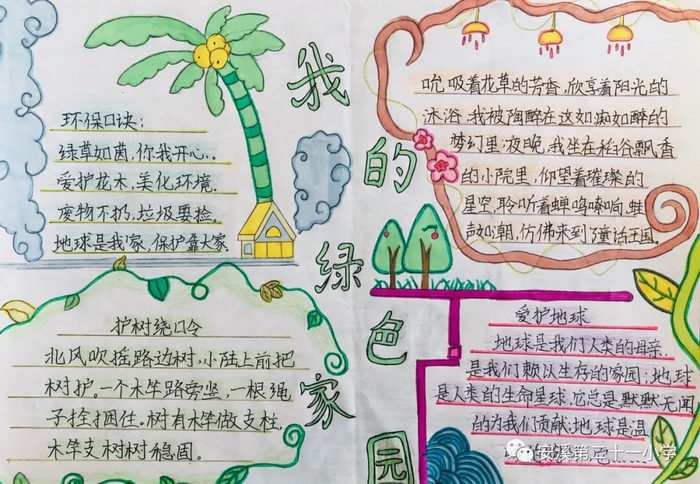 我的绿色家园
环保口诀:
绿草如茵,你我开心.
爱护花木,美化环境.
废物不扔,垃圾要捡.
地球是我家,保护靠大家
护树绕口令
北风吹摇路边树,小陆上前把
树护。一个木竿路旁竖,一根绳
子拴捆住。树有木竿做支柱,
木竿支树树稳固。
吮吸着花草的芳香,欣享着阳光的
沐浴.我被陶醉在这如痴如醉的
梦幻里;夜晚,我坐在稻谷飘香
的小院里,仰望着璀璨的
星空,聆听着蝉鸣嗓响,蛙
鼓如潮,仿佛来到了童话王国.
爱护地球
地球是我们人类的母亲,
是我们赖以生存的家园;地球
是人类的生命星球,它总是默默无闻
的为我们贡献;地球是温
安溪第二十一小学